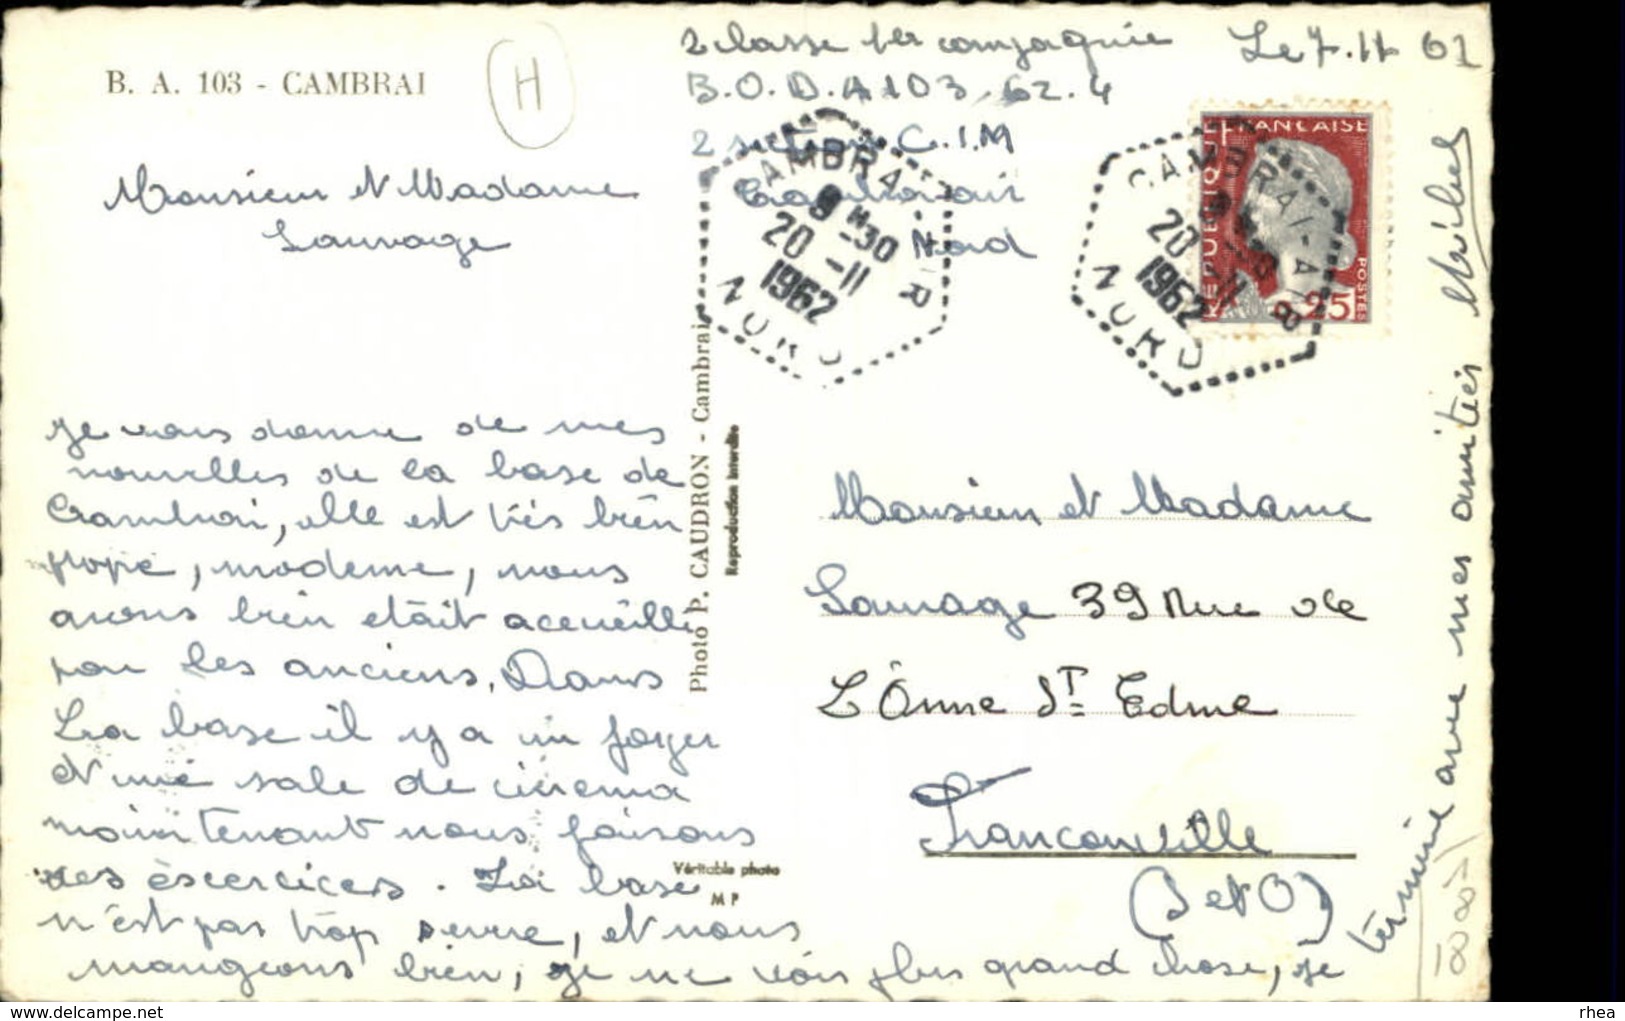 B. A. 103 - CAMBRAI
H
2 classe 1er compagnie
Le 7.11 62
B.O.D.A 103 62.4
2 section C.I.M
Cambrai
Nord
Monsieur et Madame
Sauvage
CAMBRAI-AIR
9H-30
20-11
1962
NORD
CAMBRAI-AIR
20-11
1962
NORD
RÉPUBLIQUE FRANÇAISE
0,25
POSTES
je vous donne de mes
nouvelles de la base de
Cambrai, elle est très bièn
propre, moderne, nous
avons bièn etait acceuilli
par les anciens, Dans
La base il y a un foyer
et une sale de cinema
maintenant nous faisons
des exercices. La base
n'est pas trop serrre, et nous
mangeons bièn, je ne vois plus grand chose, je
termine avec mes amitiés Michel
Photo P. CAUDRON - Cambrai
Reproduction interdite
Véritable photo
M P
Monsieur et Madame
Sauvage 39 Rue de
L'Orme St Edme
Franconville
(S et O)
18881
rhea